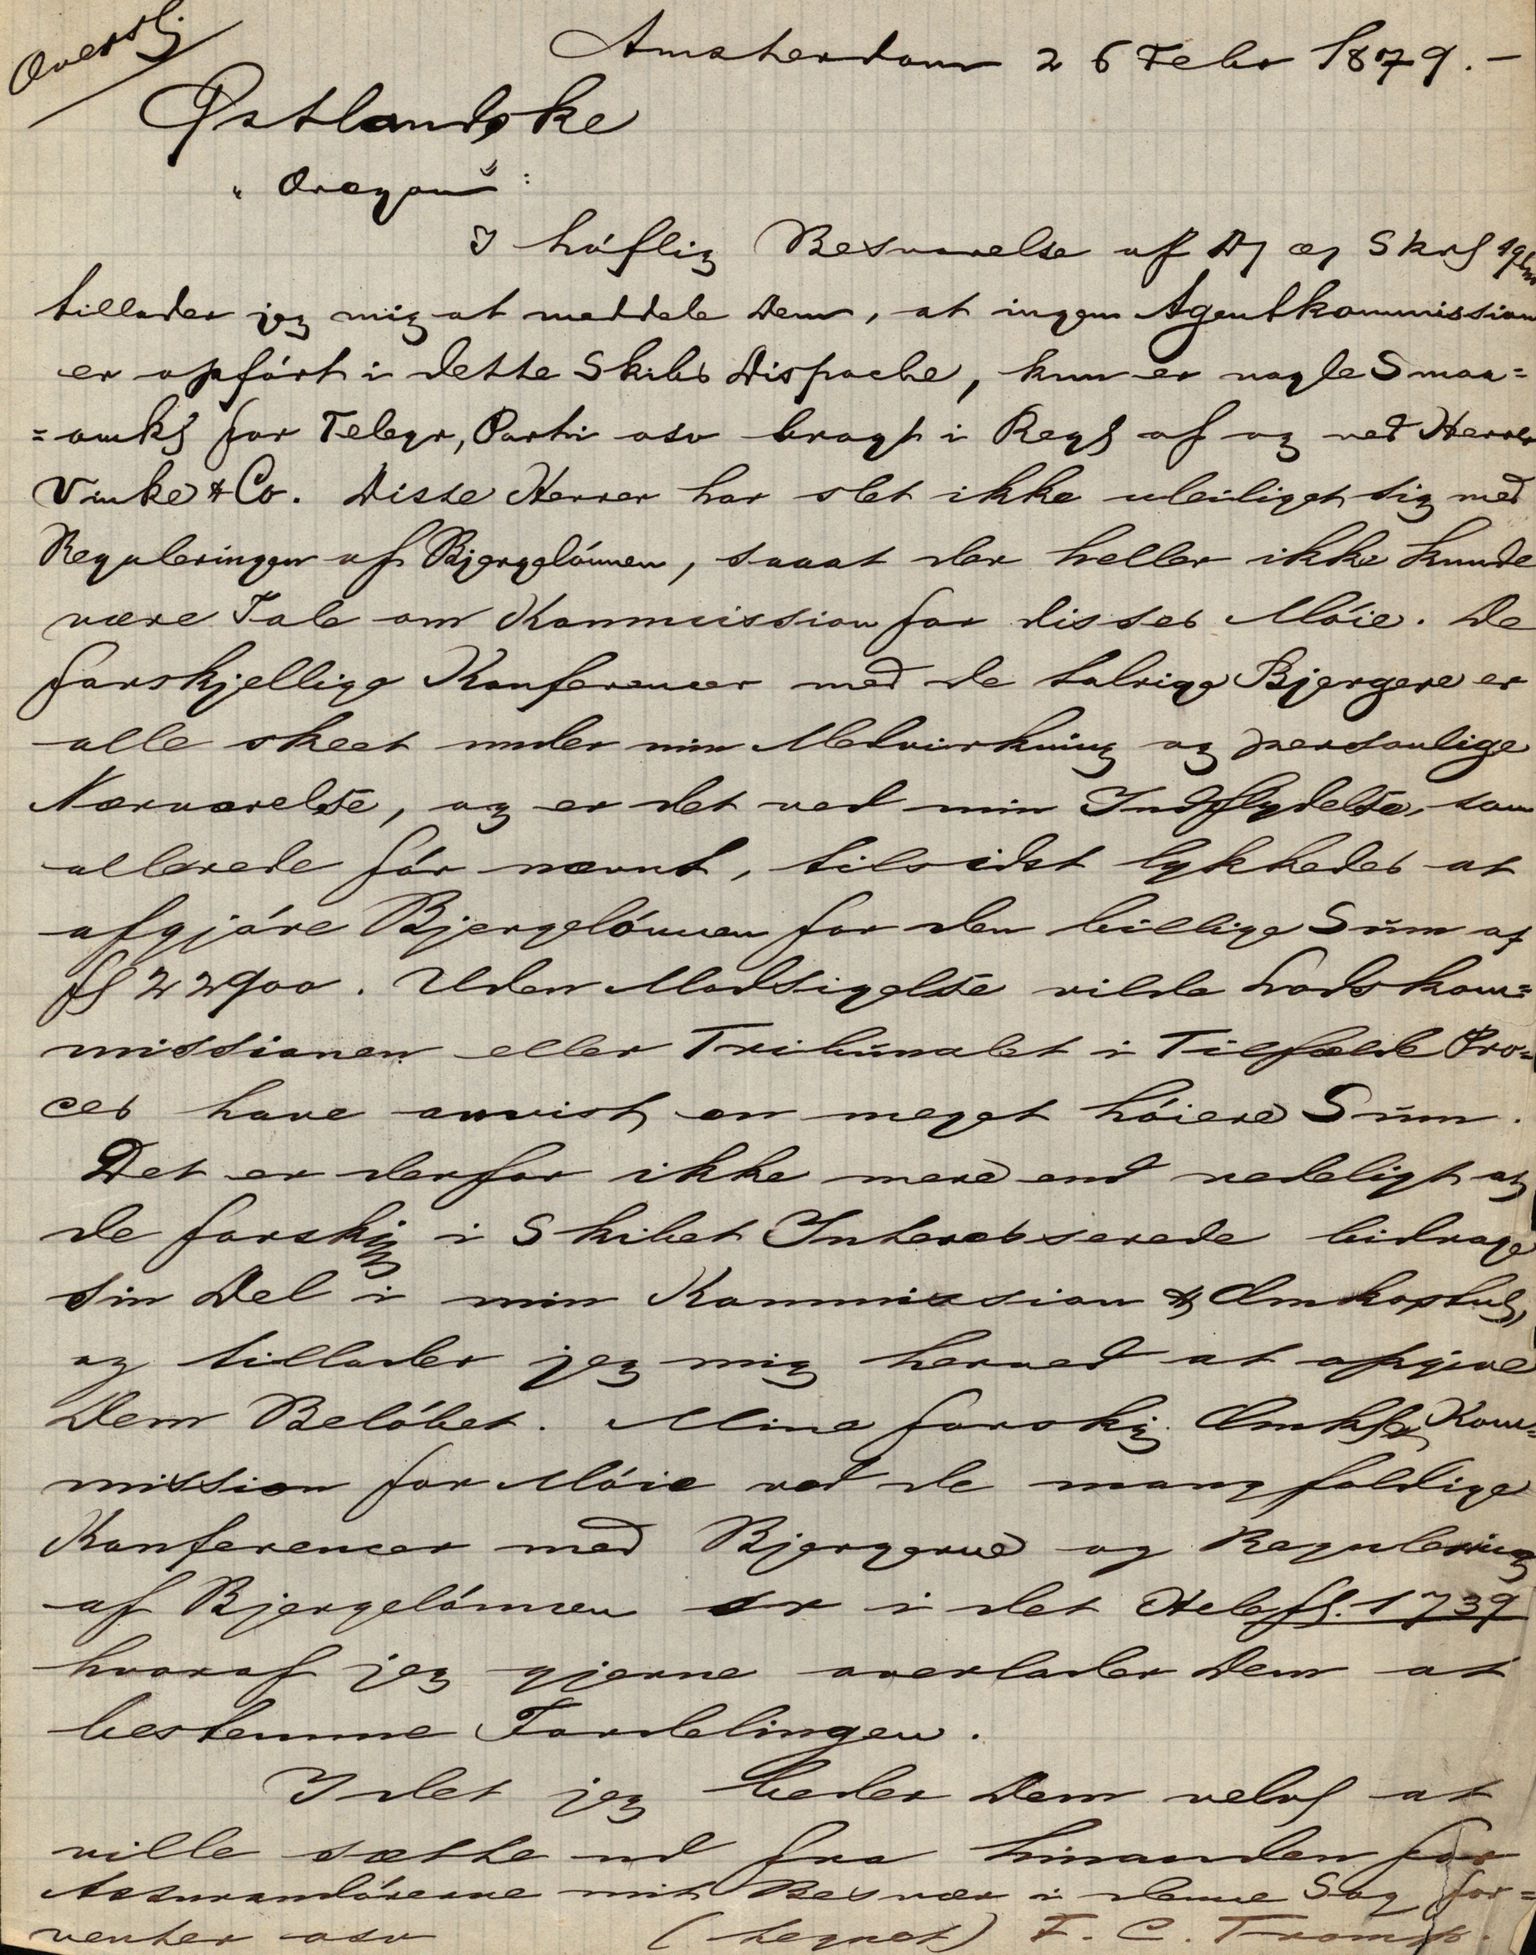 Oversæ
Amsterdam 26 Febr 1879.–
Østlandske
"Oregon":
I höflig Besvarelse af D/ æ/ Skrf 19ds
tillader jeg mig at meddele Dem, at ingen Agentkommission
er opfört i dette Skibs Dispache, kun er nogle Smaa=
=omkf for Telegr, Porti osv bragt i Regf af og ved Herrer
Vinke & Co. Disse Herrer har slet ikke uleiliget sig med
Reguleringen af Bjergelönnen, saaat der heller ikke kunde
være Tale om Kommission for disses Möie. De
forskjellige Konferencer med de talrige Bjergere er
alle skeet under min Medvirkning og personlige
Nærværelse, og er det ved min Indflydelse, som
allerede för nævnt, tilsidst lykkedes at
afgjöre Bjergelönnen for den billige Sum af
fl 22900. Uden Modsigelse vilde Lodskom=
missionen eller Tribunalet i Tilfælde Pro=
ces have anvist en meget höiere Sum.
Det er derfor ikke mere end redeligt at
de forskj i Skibet Interesserede bidrage
sin Del i min Kommission & Omkostng,
og tillader jeg mig herved at opgive
Dem Belöbet. Mine forskj. Omkfr, Kom=
mission for Möie ved de mangfoldige
Konferencer med Bjergerne og Regulering
af Bjergelönnen er i det Hele fl. 1739
hvoraf jeg gjerne overlader Dem at
bestemme Fordelingen.
Idet jeg beder Dem velvf at
ville sætte ud fra hinanden for
Assurandörerne mit Besvær i denne Sag for=
venter osv (tegnet) F. C. Tromp.